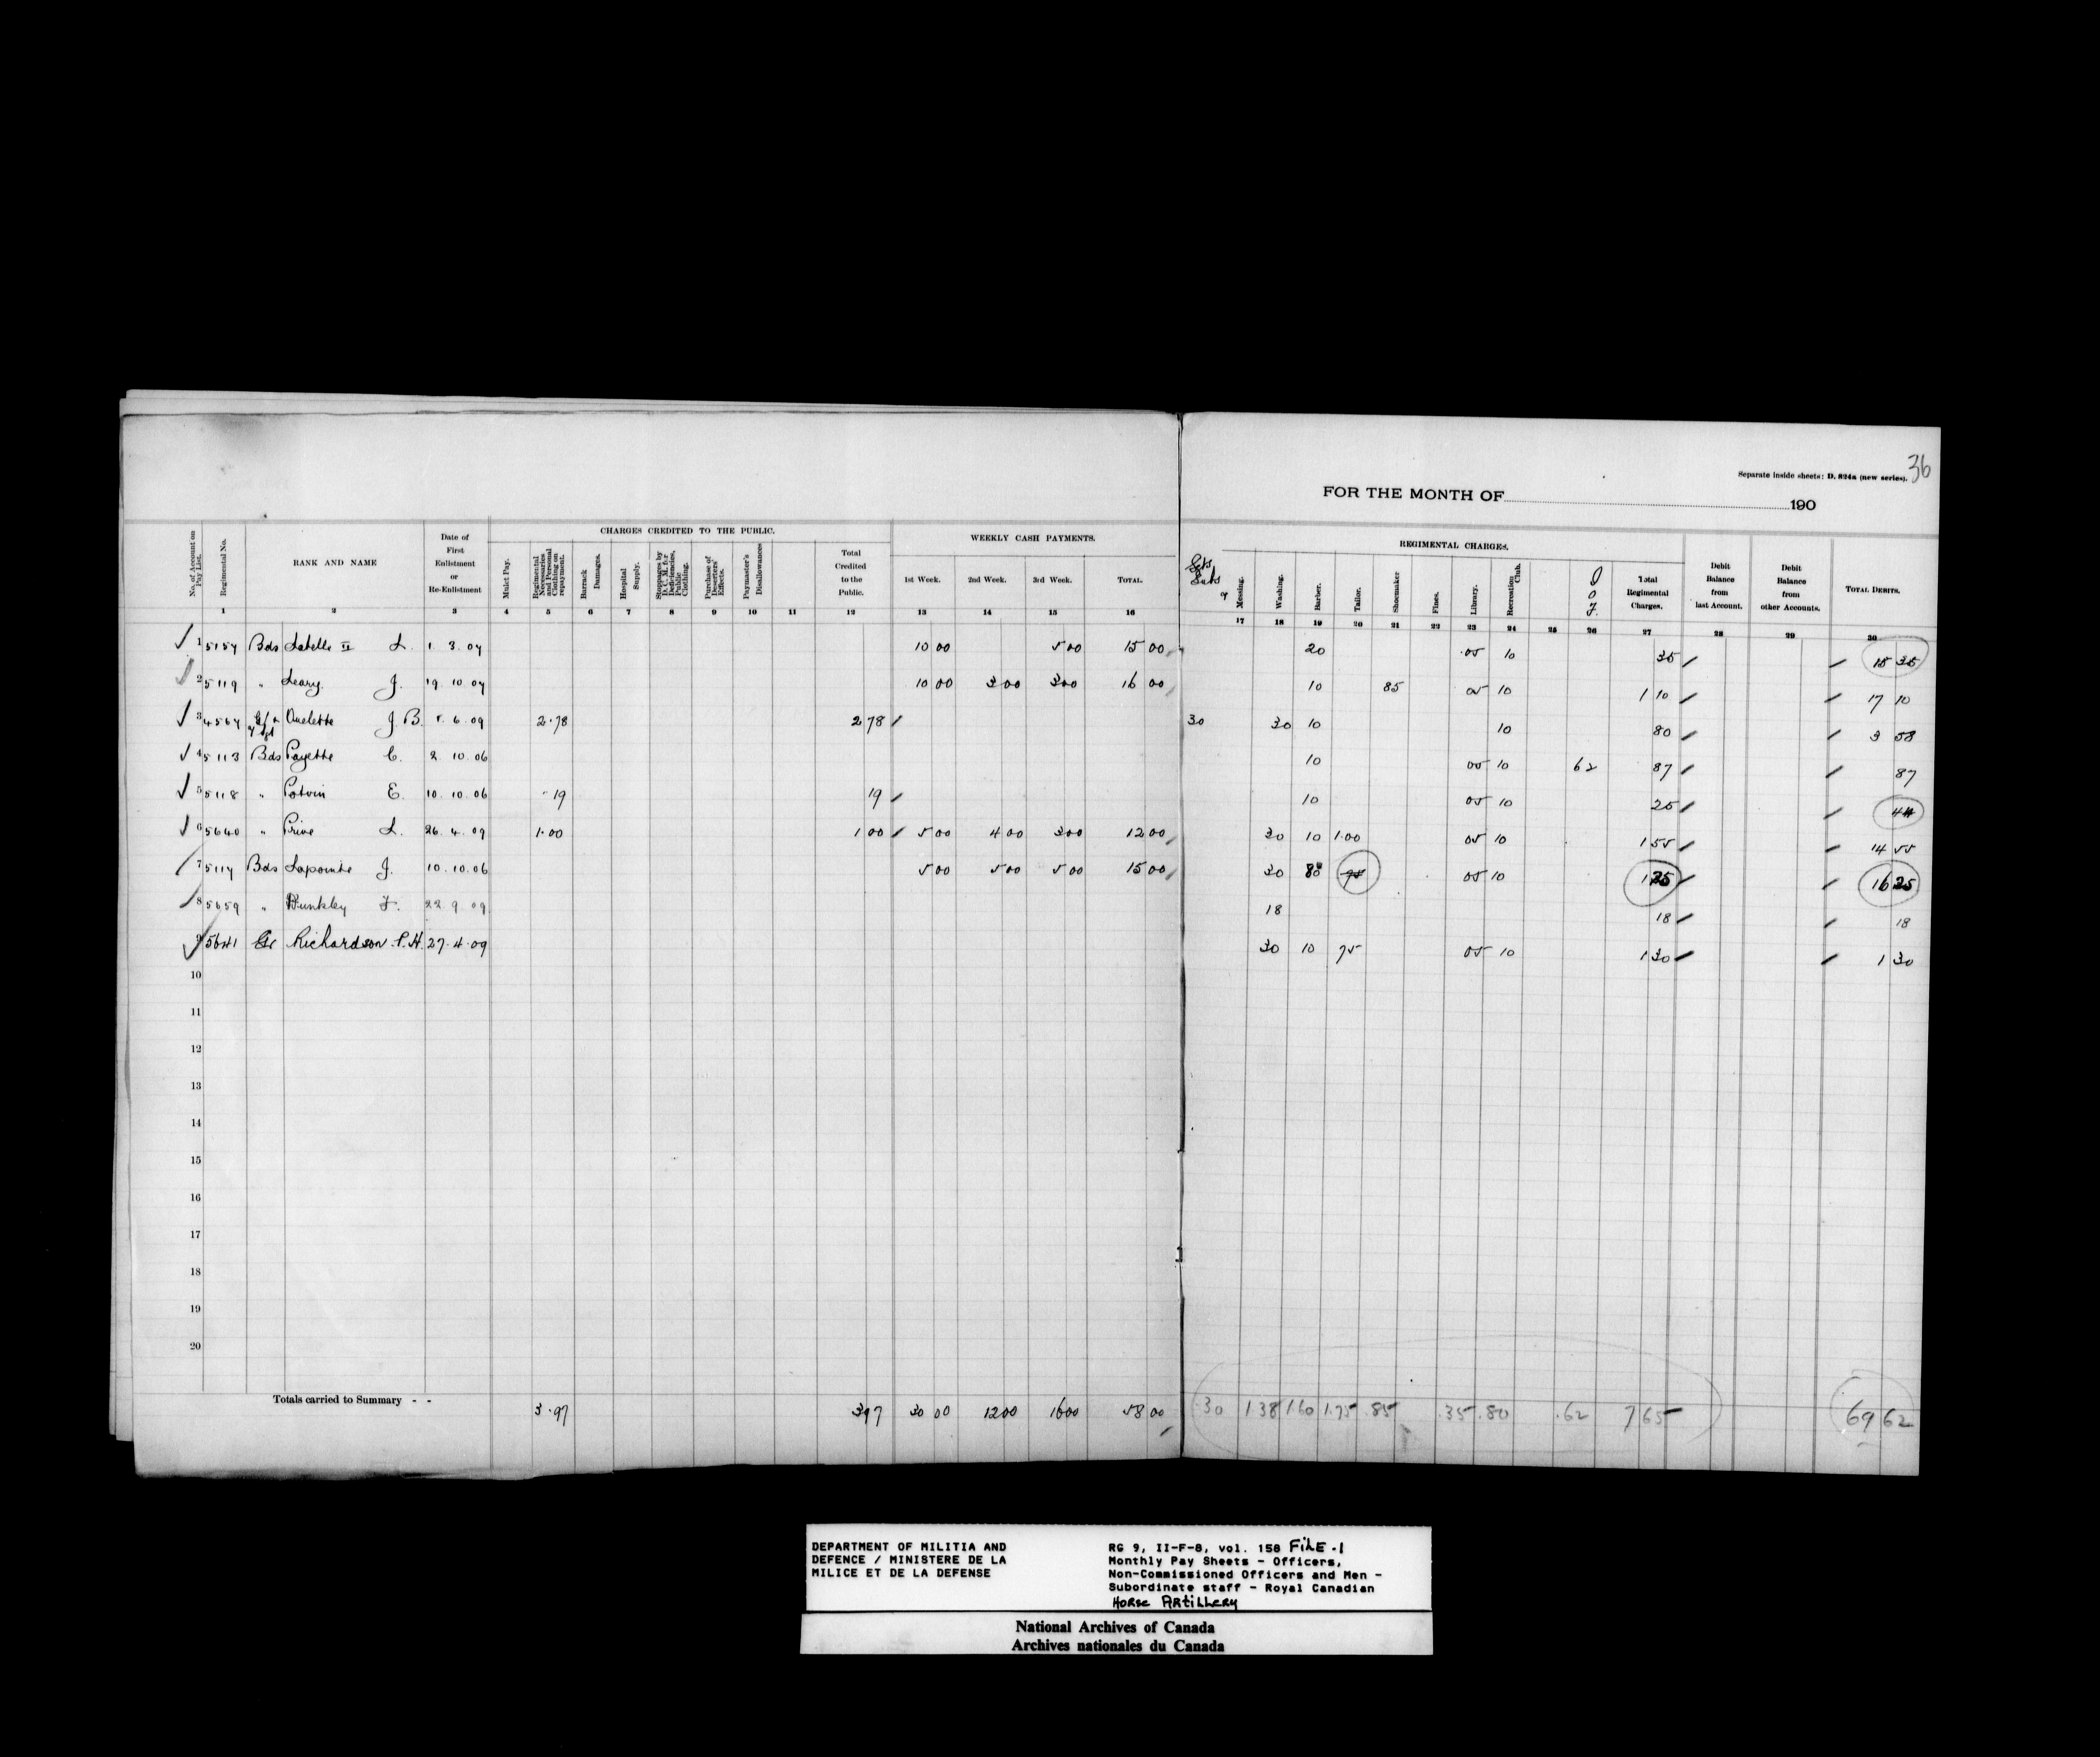 36
Separate inside sheets: D. 824a (new series).
FOR THE MONTH OF 190
No. of Account on Pay List.
Regimental No.
RANK AND NAME
Date of First Enlistment or Re-Enlistment
CHARGES CREDITED TO THE PUBLIC.
Mulct Pay.
Regimental Necessaries and Personal Clothing on repayment.
Barrack Damages.
Hospital Supply.
Stoppages by D. C. M. for Deficiencies, Public Clothing.
Purchase of Deserters' Effects.
Paymaster's Disallowances
Total Credited to the Public.
WEEKLY CASH PAYMENTS.
1st Week. 2nd Week. 3rd Week. TOTAL.
REGIMENTAL CHARGES.
Messing.
Washing.
Barber.
Tailor.
Shoemaker
Fines.
Library.
Recreation Club.
Total Regimental Charges.
Debit Balance from last Account.
Debit Balance from other Accounts.
TOTAL DEBITS.
1 2 3 4 5 6 7 8 9 10 11 12 13 14 15 16 17 18 19 20 21 22 23 24 25 26 27 28 29 30
1 5154 Bds Labelle II L. 1 3 04 10 00 5 00 15 00 20 .05 10 35 15 35
2 5119 " Leary. J. 19 10 04 10 00 3 00 3 00 16 00 10 85 05 10 1 10 17 10
3 4564 Ouelette J.B. 6 09 2.78 2 78 30 30 10 10 80 3 58
4 5113 Bds Payette C. 2 10 06 10 05 10 62 87 87
5 5118 " Potvin E. 10 10 06 19 19 10 05 10 25 44
6 5640 " Prive L. 26 4 09 1.00 1 00 5 00 4 00 3 00 12 00 30 10 1.00 05 10 1 55 14 55
7 5114 Bds Lapointe J. 10.10.06 5 00 5 00 5 00 15 00 30 80 75 05 10 1 25 16 25
8 5659 " Dunkley F. 22 9 09 18 18 18
9 5641 Gr Richardson P.H. 27.4.09 30 10 75 05 10 1 30 1 30
10
11
12
13
14
15
16
17
18
19
20
Totals carried to Summary - - 3.97 3 97 30 00 12 00 16 00 58 00 .30 1 38 1 60 1.75 .85 .35 .80 .62 7 65 69 62
DEPARTMENT OF MILITIA AND
DEFENCE / MINISTERE DE LA
MILICE ET DE LA DEFENSE
RG 9, II-F-8, vol. 158 FILE.1
Monthly Pay Sheets - Officers,
Non-Commissioned Officers and Men -
Subordinate staff - Royal Canadian
HORSE ARTILLERY
National Archives of Canada
Archives nationales du Canada